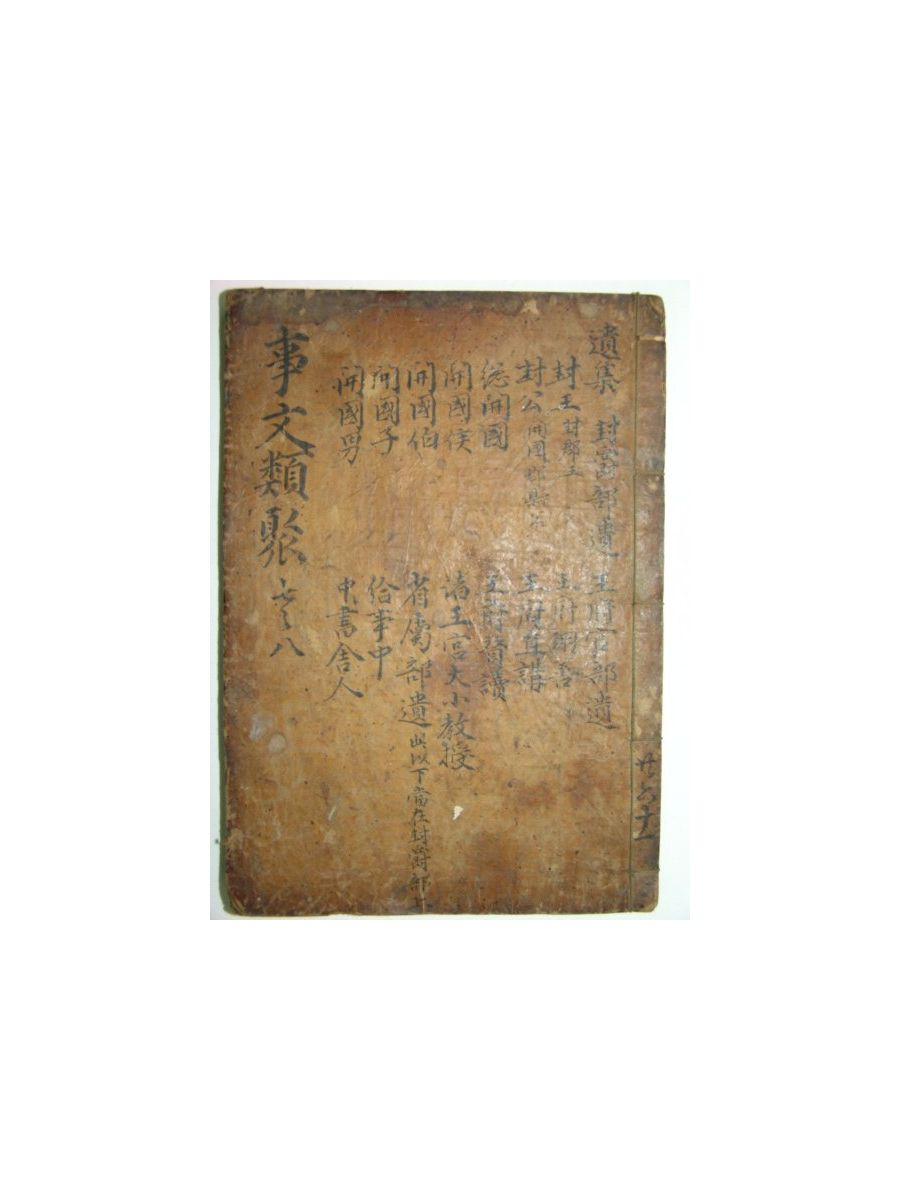 遺集 封爵部遺 王府官部遺
封王 封郡王 王府翊善
封公 開國郡縣公 王府直講
総開國 王府賛讀
開國侯 諸王宮大小教授
開國伯 省屬部遺 此以下當在封爵部上
開國子 給事中
開國男 中書舎人
事文類聚 七之八
共六十一